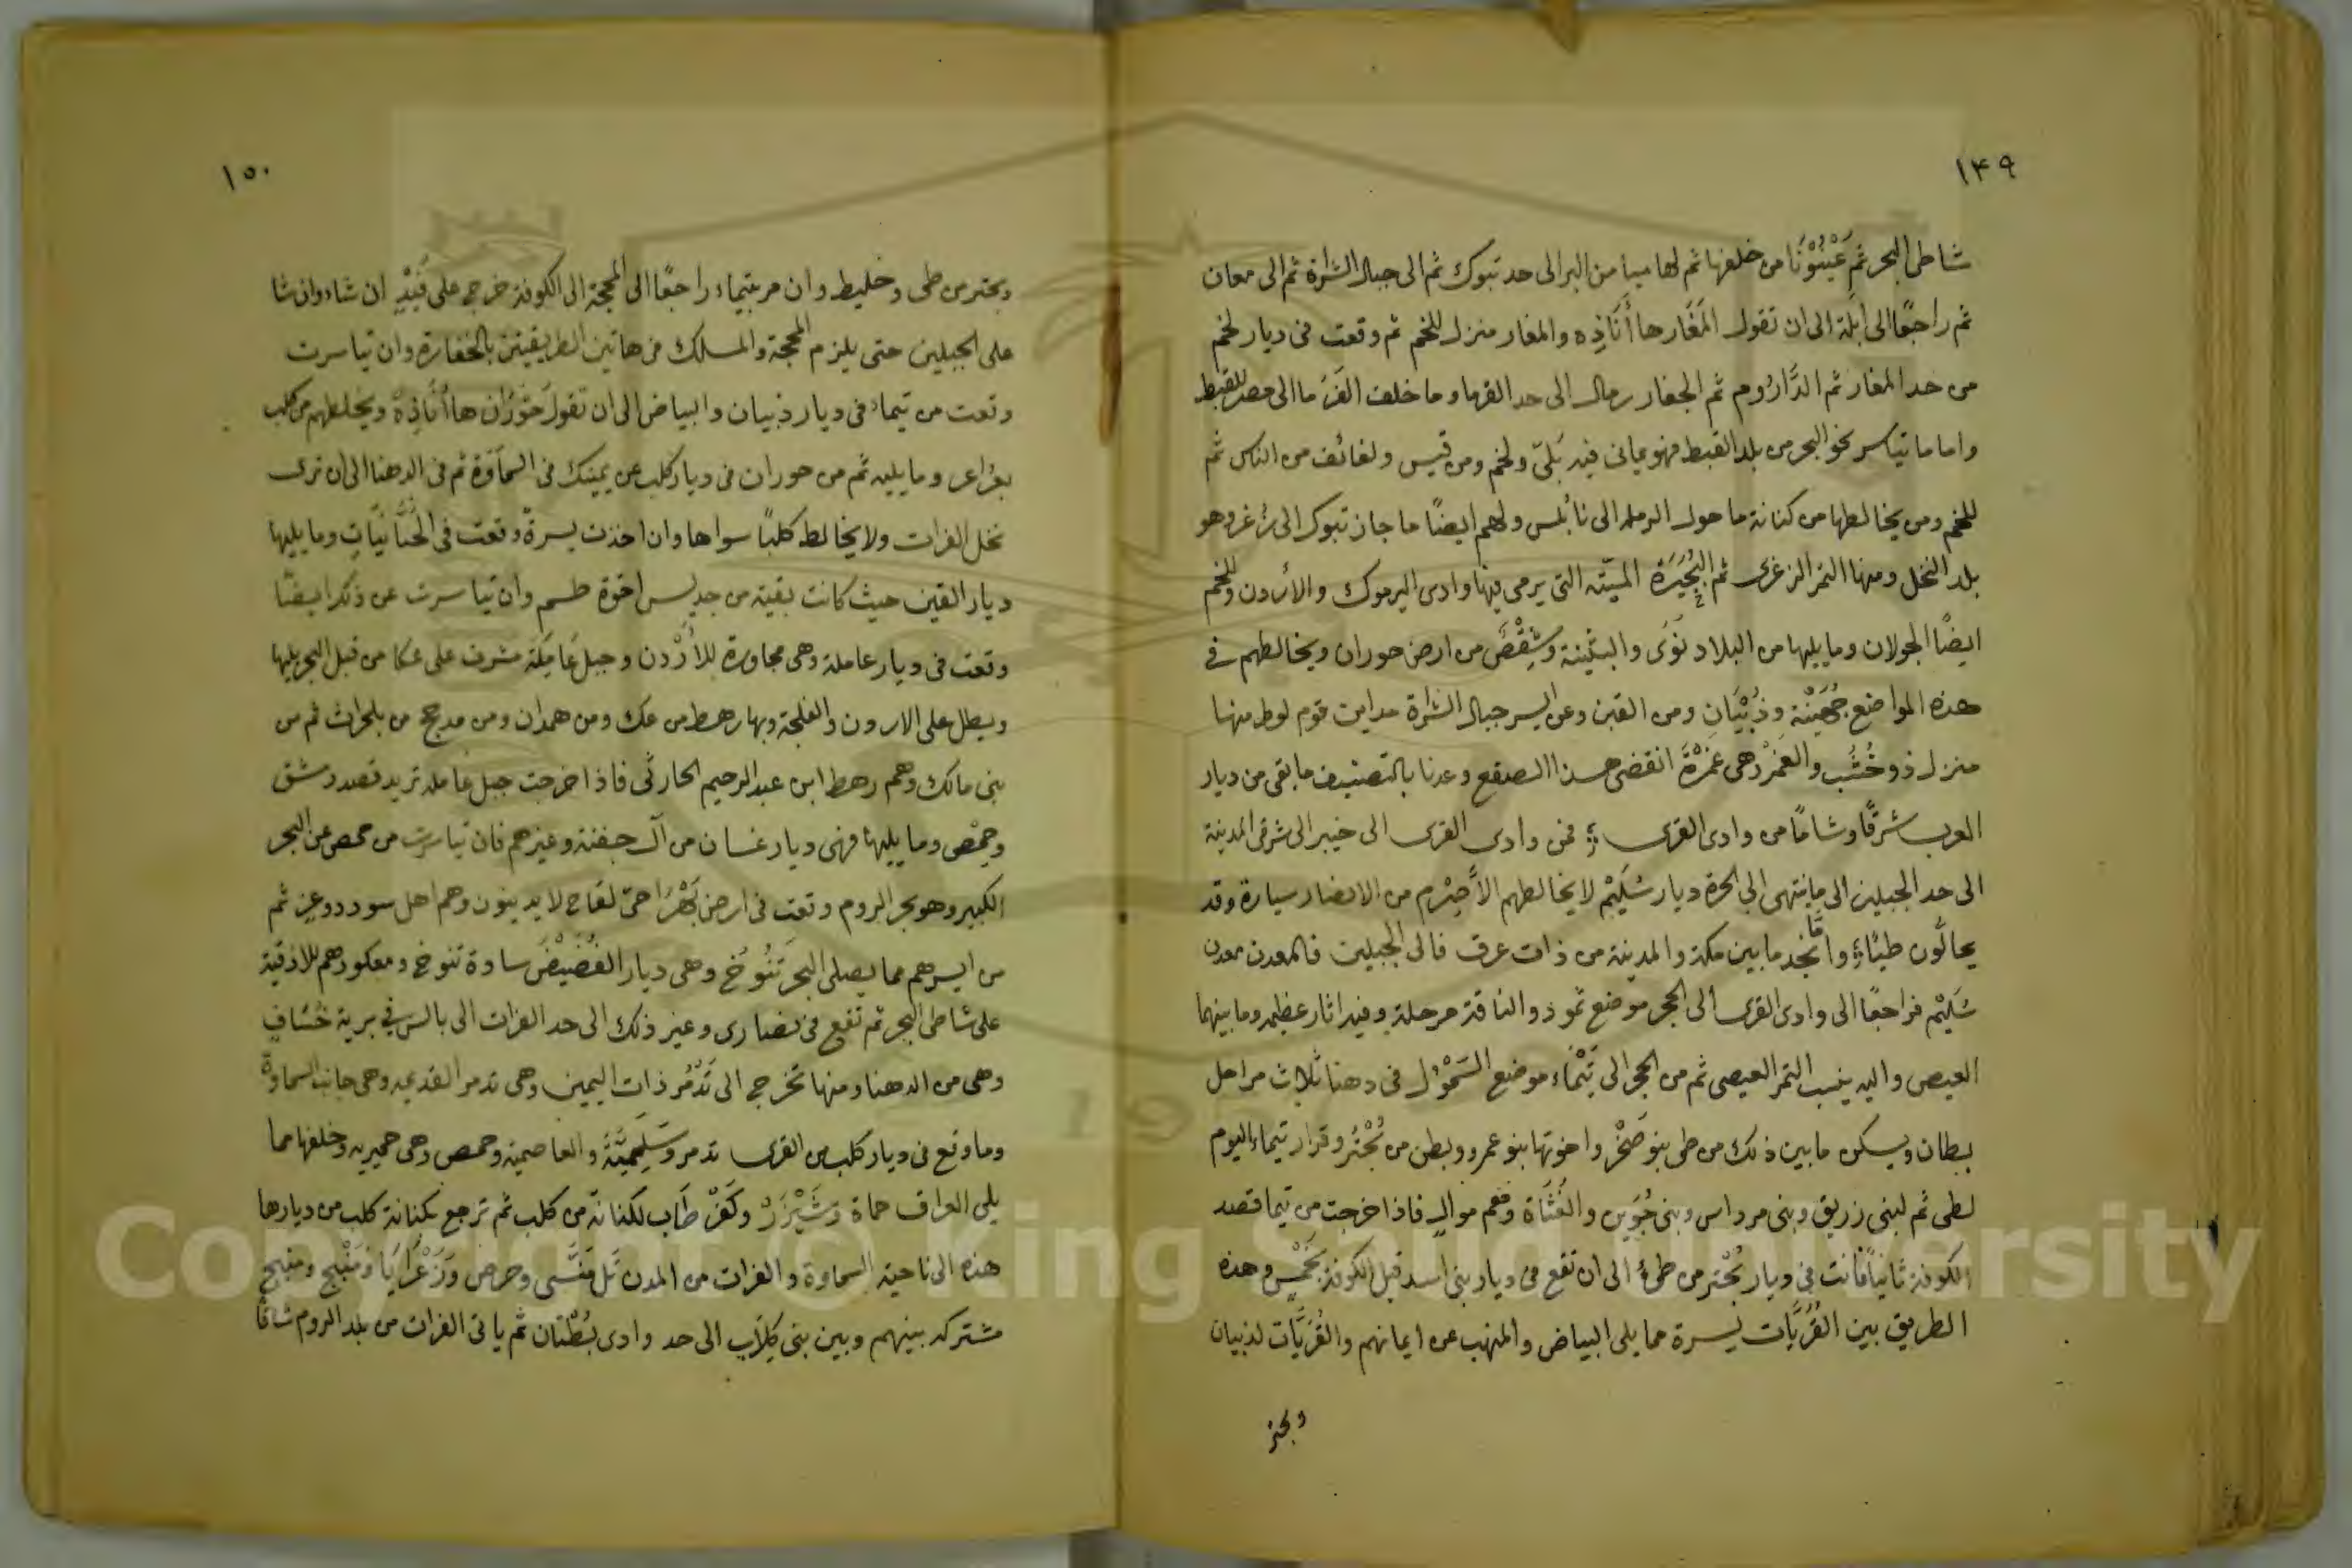 ١٤٩
شاطى البحر ثم عَيْنُوْنَا من خلفها ثم لها ميا من البر الى حد تبوك ثم الى جبال الشراة ثم الى معان
ثم راجعًا الى ايلة الى ان تقول المَغَار ها أنَاذِه والمغار منزل للخم ثم وقعت فى ديار لخم
من حد المغار ثم الدَّارُوم ثم الجفار رمال الى حد الفرما وما خلف الفَرَما الى مصر للقبط
واما ما تياسر نحو البحر من بلد القبط فهو يمانى فيه بَلىّ ولخم ومن قيس ولفائف من الناس ثم
للخم ومن يخالطها من كنانة ما حول الرمله الى نابُلس ولهم ايضًا ما جاز تبوك الى زُغر وهو
بلد النخل ومنها التمر الزغرى ثم البُحَيْرَة الميّته التى يرمى فيها وادى اليرموك والأردن وللخم
ايضًا الجولان وما يليها من البلاد نَوَى والبثَنِينة وشِقْصٌ من ارض حوران ويخالطهم فى
هذه المواضع جُهَيْنَة وذُبْيَانِ ومن القين وعن ايسر جبال الشراة مداين قوم لوط منها
منزل ذو خُشُب والغَمْرُ وهى غَمْرَةُ انقضى هذا الصقع وعدنا بالتصنيف ما بقى من ديار
العرب شرقًا وشامًا من وادى القرى فمن وادى القرى الى خيبر الى شرقى المدينة
الى حد الجبلين الى ما ينتهى الى الحرة ديار سُلَيْم لا يخالطهم الا صِرْم من الانصار سيارة وقد
يحالّون طيّاء وانّا نجد ما بين مكة والمدينة من ذات عرق فالى الجبلين فالمعدن معدن
سُلَيْم فراجعًا الى وادى القرى الى الحجر موضع ثمود والناقة مرحلة وفيه اثار عظيمه وما بينهما
العيص واليه ينسب التمر العيصى ثم من الحجر الى تَيْمَاء موضع السَمَوْءَل فى دهنا ثلاث مراحل
بطان ويسكن ما بين ذلك من طى بنو صَخْر واخوتها بنو عمرو وبطن من بُحْتُر وقرار تيماء اليوم
لطى ثم لبنى زريق وبنى مرداس وبنى جُوَين والغُثَاة وهم موالٍ فاذا خرجت من تيما قصد
الكوفة ثانيًا فانت فى ديار بُحْتر من طىء الى ان تقع فى ديار بنى اسد قبل الكوفة بخَمْسٍ وهذه
الطريق بين القُرَيَّات يسرة مما يلى البياض والمنهب عن ايمانهم والقُرَيَّات لذبيان
وبحتر
١٥٠
وبحتر من طى وخليط وان مر بتيماء راجعًا الى المحجة الى الكوفة خرج على فَيْدٍ ان شاء وان شا
على الجبلين حتى يلزم المحجة والمسلك فى هاتين الطريقين بالخفارة وان تياسرت
وقعت من تيماء فى ديار ذبيان والبياض الى ان تقول حَوْرَان ها أنَاذِهْ ويخلطهم من كلب
بعُراعر وما يليه ثم من حوران فى ديار كلب عن يمينك فى السمَاوَة ثم فى الدهنا الى ان ترى
نخل الفرات ولا يخالط كلبًا سواها وان اخذت يسرةً وقعت فى وما يليها
ديار القين حيث كانت بقية من جديس اخوة طسم وان تياسرت عن ذلك ايضًا
وقعت فى ديار عاملة وهى مجاورة للأردن وجبل عَامِلَة مشرف على عكا من قبل البحر يليها
ويطل على الاردن والفلجة وبها رهط من عك ومن همدان ومن مذحج من بلحراث ثم من
بنى مالك وهم رهط ابن عبد الرحيم الحارثى فاذا خرجت جبل عامله تريد قصد دمشق
وحِمْص وما يليها فهى ديار غسان من آل جفنة وغيرهم فان تياسرت من حمص عن البحر
الكبير وهو بحر الروم وقعت فى ارض بَهْرَا حىّ لقاح لا يدينون وهم اهل سودد وعز ثم
من ايسرهم مما يصلى البحر تَنُوْخ وهى ديار الفُصَيْص سادة تنوخ ومعكودهم للاذقية
على شاطى البحر ثم تقع فى نصارى وغير ذلك الى حد الفرات الى بالس فى برية خُسَافٍ
وهى من الدهنا ومنها تخرج الى تَدْمُر ذات اليمين وهى تدمر القديمه وهى جانب السماوة
وما وقع فى ديار كلب من القرى تدمر وسَلَمِيَّةُ والعاصمية وحمص وهى حميريه وخلفها مما
يلى العراق حماة وشَيْزَرْ وكَفَرْ طَاب لكنانة من كلب ثم ترجع بكنانة كلب من ديارها
هذه الى ناحية السماوة والفرات من المدن تَل مَنَّسى وحرض وزَعْرَايَا ومَنْبِج ومنبج
مشتركه بينهم وبين بنى كِلَاب الى حد وادى بُطْنَان ثم ياتى الفرات من بلد الروم شاقًا
Copyright © King Saud University
1957